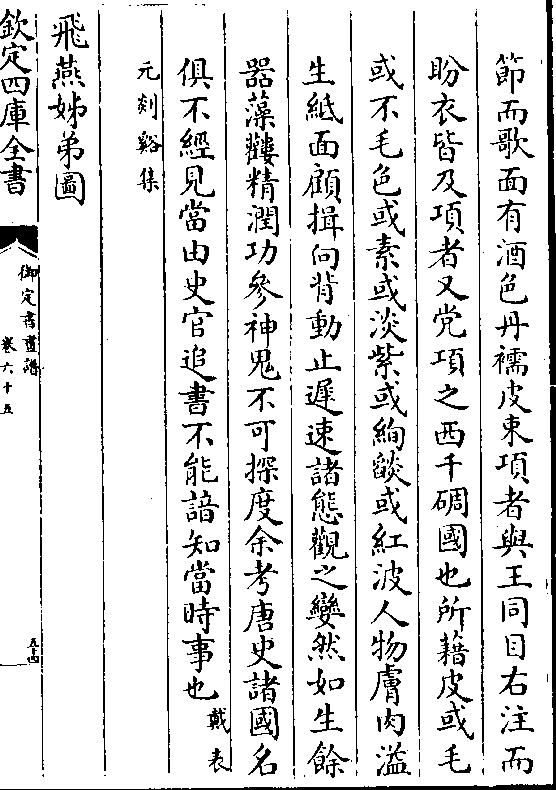 節而歌面有酒色丹襦皮束項者與王同目右注而
盼衣皆及項者又党項之西千碉國也所藉皮或毛
或不毛色或素或淡紫或絢燄或紅波人物膚肉溢
生紙面顧揖向背動止遲速諸態觀之孌然如生餘
器藻韄精潤功參神鬼不可探度余考唐史諸國名
俱不經見當由史官追書不能諳知當時事也 戴表
元剡谿集
飛燕姊弟圖
欽定四庫全書
御定書畫譜
卷六十五
五十四